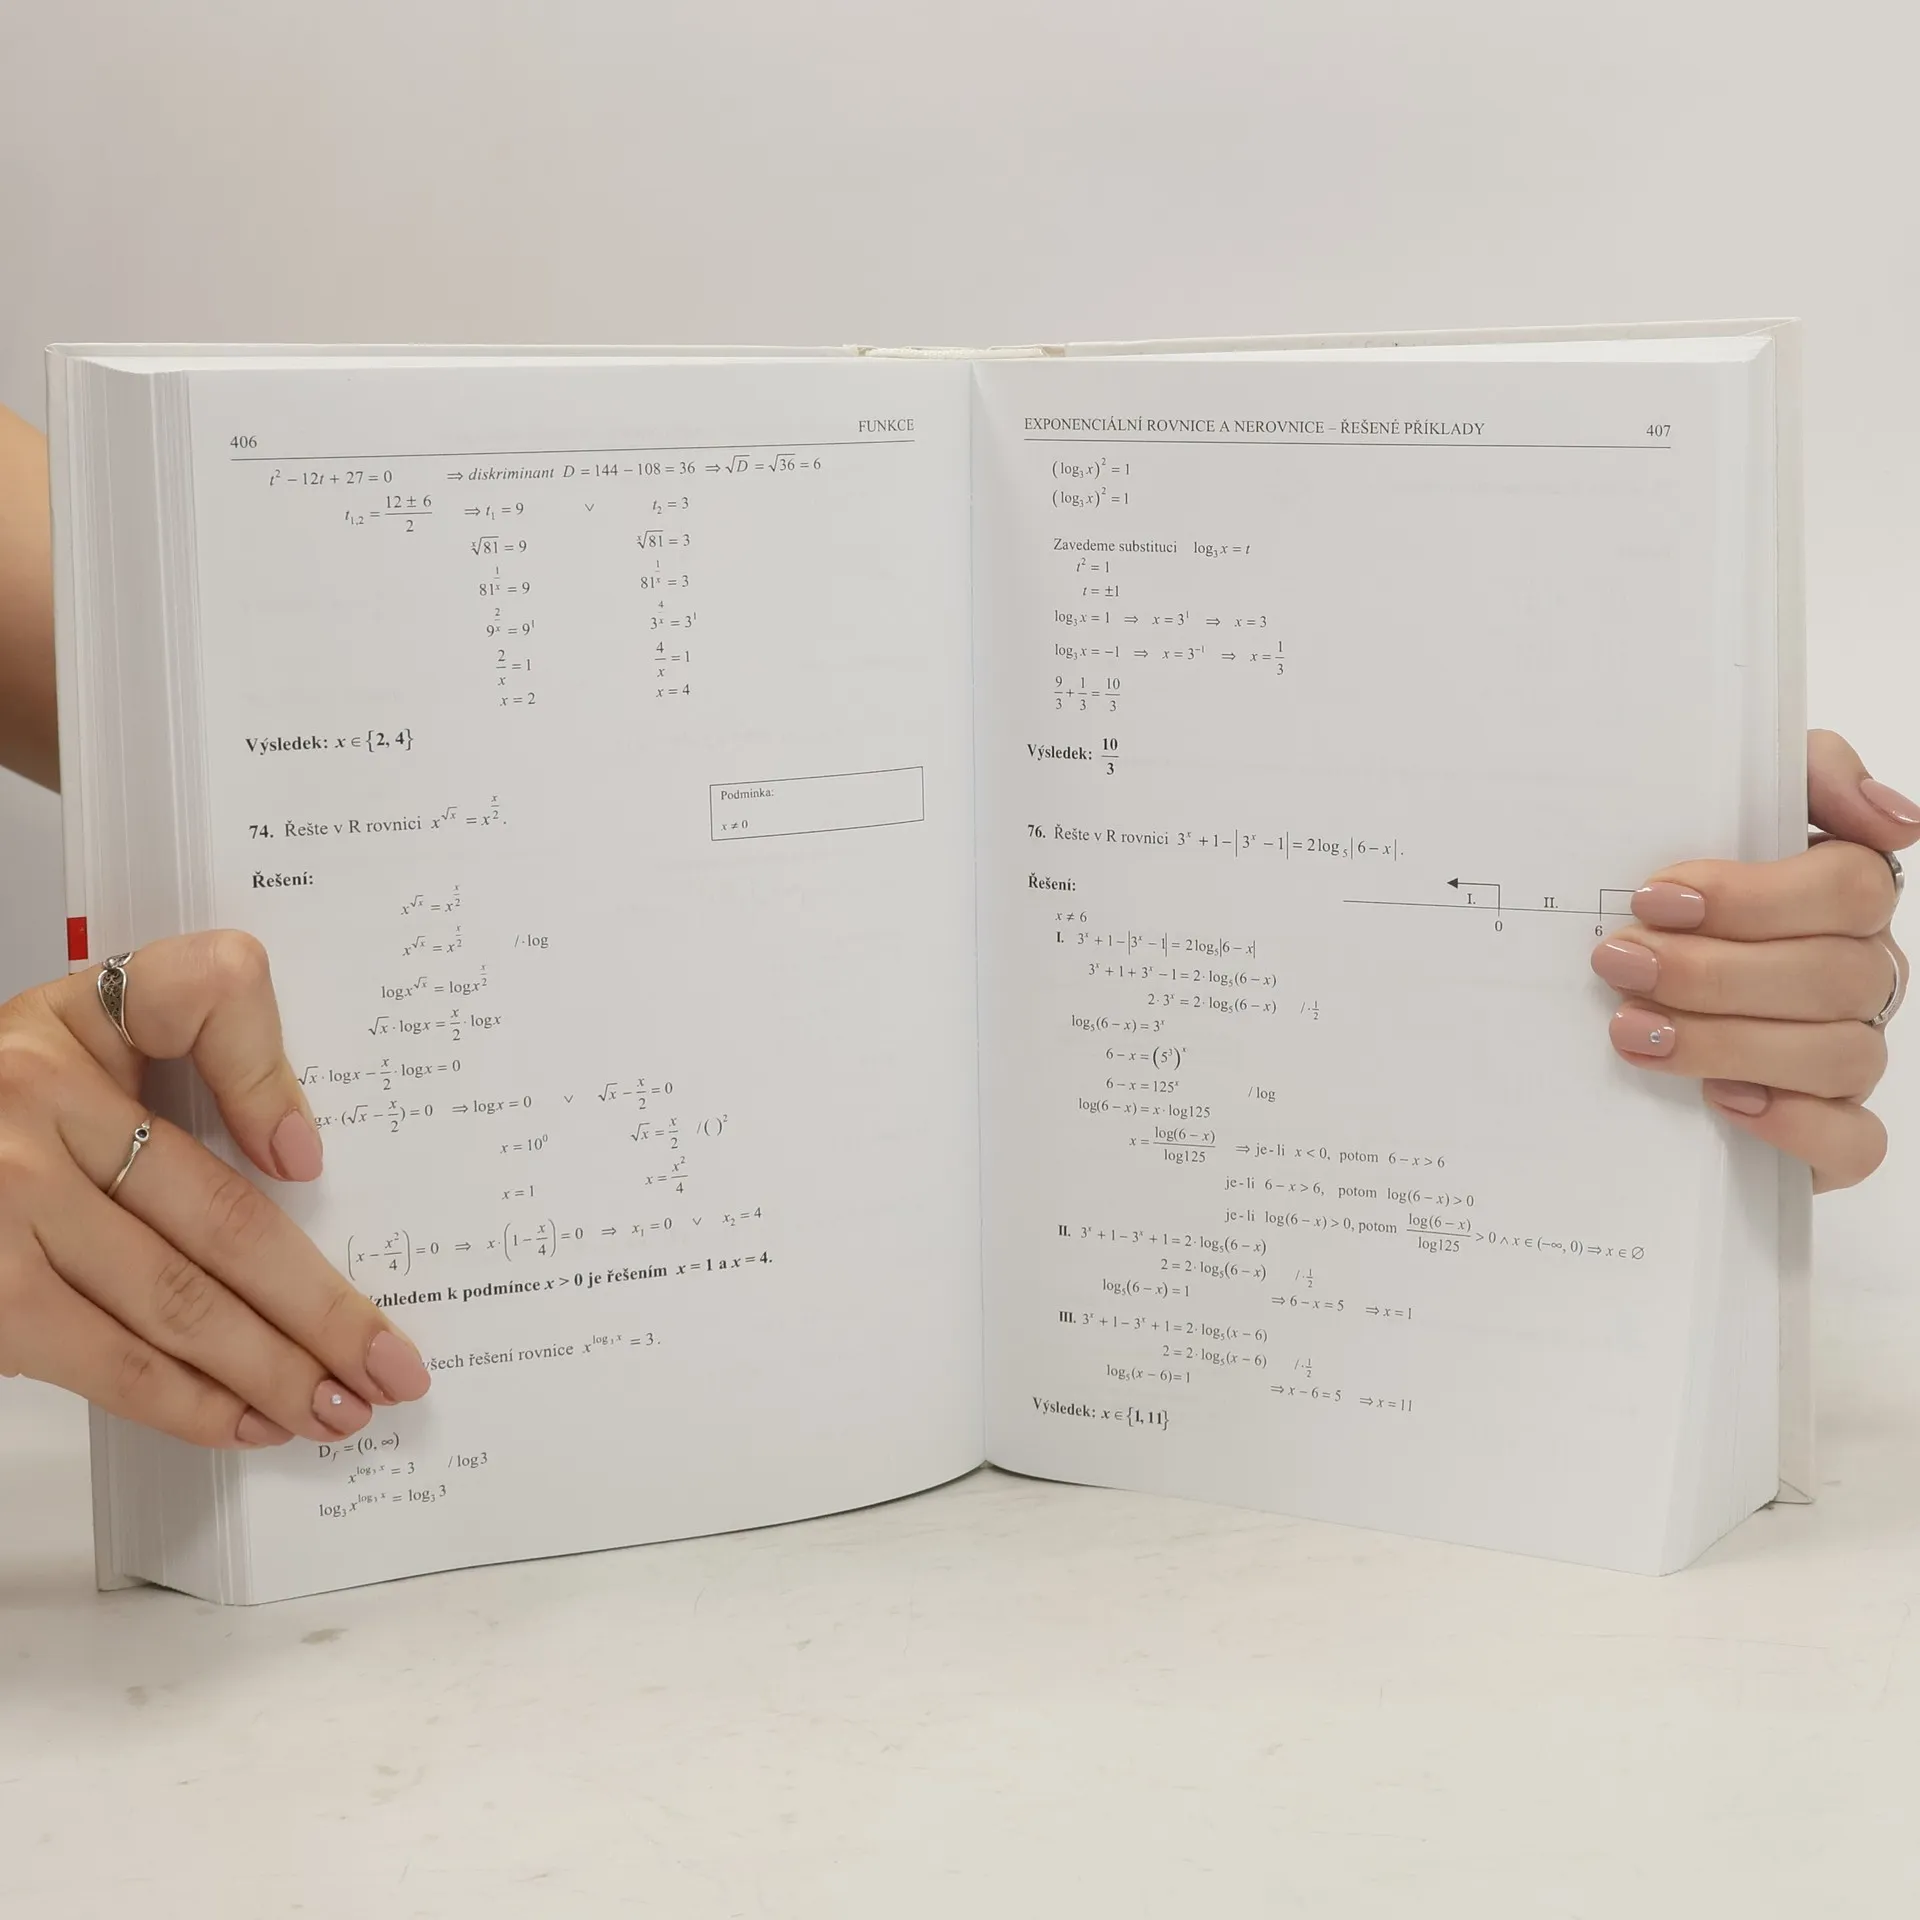 406 FUNKCE
t² − 12t + 27 = 0 ⇒ diskriminant D = 144 − 108 = 36 ⇒ √D = √36 = 6
t₁,₂ = (12 ± 6)/2 ⇒ t₁ = 9 ∨ t₂ = 3
ˣ√81 = 9 ˣ√81 = 3
81^(1/x) = 9 81^(1/x) = 3
9^(2/x) = 9¹ 3^(4/x) = 3¹
2/x = 1 4/x = 1
x = 2 x = 4
Výsledek: x ∈ {2, 4}
Podmínka:
x ≠ 0
74. Řešte v R rovnici x^(√x) = x^(x/2).
Řešení:
x^(√x) = x^(x/2)
x^(√x) = x^(x/2) /·log
logx^(√x) = logx^(x/2)
√x · logx = x/2 · logx
√x · logx − x/2 · logx = 0
gx · (√x − x/2) = 0 ⇒ logx = 0 ∨ √x − x/2 = 0
x = 10⁰ √x = x/2 /( )²
x = 1 x = x²/4
(x − x²/4) = 0 ⇒ x·(1 − x/4) = 0 ⇒ x₁ = 0 ∨ x₂ = 4
zhledem k podmínce x > 0 je řešením x = 1 a x = 4.
všech řešení rovnice x^(log₃ x) = 3.
D_f = (0, ∞)
x^(log₃ x) = 3 / log3
log₃ x^(log₃ x) = log₃ 3
EXPONENCIÁLNÍ ROVNICE A NEROVNICE – ŘEŠENÉ PŘÍKLADY 407
(log₃x)² = 1
(log₃x)² = 1
Zavedeme substituci log₃x = t
t² = 1
t = ±1
log₃x = 1 ⇒ x = 3¹ ⇒ x = 3
log₃x = −1 ⇒ x = 3⁻¹ ⇒ x = 1/3
9/3 + 1/3 = 10/3
Výsledek: 10/3
76. Řešte v R rovnici 3ˣ + 1 − |3ˣ − 1| = 2 log₅|6 − x|.
Řešení:
I. II.
0 6
x ≠ 6
I. 3ˣ + 1 − |3ˣ − 1| = 2log₅|6 − x|
3ˣ + 1 + 3ˣ − 1 = 2· log₅(6 − x)
2· 3ˣ = 2· log₅(6 − x) /·1/2
log₅(6 − x) = 3ˣ
6 − x = (5³)ˣ
6 − x = 125ˣ / log
log(6 − x) = x· log125
x = log(6 − x)/log125 ⇒ je-li x < 0, potom 6 − x > 6
je-li 6 − x > 6, potom log(6 − x) > 0
je-li log(6 − x) > 0, potom log(6 − x)/log125 > 0 ∧ x ∈ (−∞, 0) ⇒ x ∈ ∅
II. 3ˣ + 1 − 3ˣ + 1 = 2· log₅(6 − x)
2 = 2· log₅(6 − x) /·1/2
log₅(6 − x) = 1 ⇒ 6 − x = 5 ⇒ x = 1
III. 3ˣ + 1 − 3ˣ + 1 = 2· log₅(x − 6)
2 = 2· log₅(x − 6) /·1/2
log₅(x − 6) = 1 ⇒ x − 6 = 5 ⇒ x = 11
Výsledek: x ∈ {1, 11}